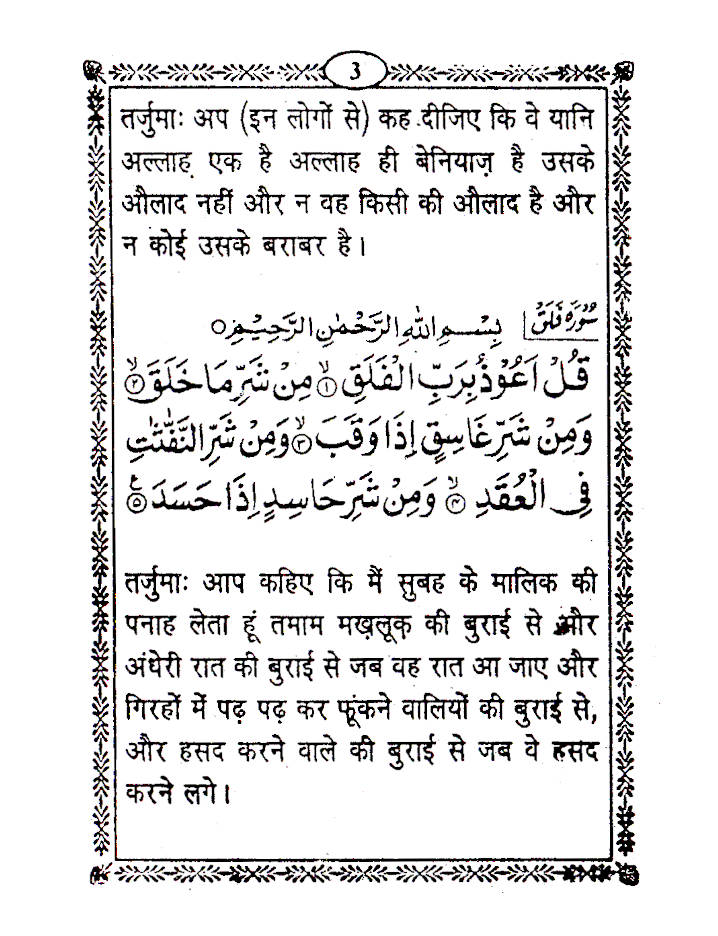 3
तर्जुमाः अप (इन लोगों से) कह दीजिए कि वे यानि
अल्लाह एक है अल्लाह ही बेनियाज़ है उसके
औलाद नहीं और न वह किसी की औलाद है और
न कोई उसके बराबर है।
سُورَةُ فَلَقْ بِسْمِ اللهِ الرَّحْمٰنِ الرَّحِيْمِ ○
قُلْ اَعُوْذُ بِرَبِّ الْفَلَقِ ۙ﴿۱﴾ مِنْ شَرِّ مَا خَلَقَ ۙ﴿۲﴾
وَمِنْ شَرِّ غَاسِقٍ اِذَا وَقَبَ ۙ﴿۳﴾ وَمِنْ شَرِّ النَّفّٰثٰتِ
فِى الْعُقَدِ ۙ﴿۴﴾ وَمِنْ شَرِّ حَاسِدٍ اِذَا حَسَدَ ﴿۵﴾ع
तर्जुमाः आप कहिए कि मैं सुबह के मालिक की
पनाह लेता हूं तमाम मख़लूक़ की बुराई से और
अंधेरी रात की बुराई से जब वह रात आ जाए और
गिरहों में पढ़ पढ़ कर फूंकने वालियों की बुराई से,
और हसद करने वाले की बुराई से जब वे हसद
करने लगे।